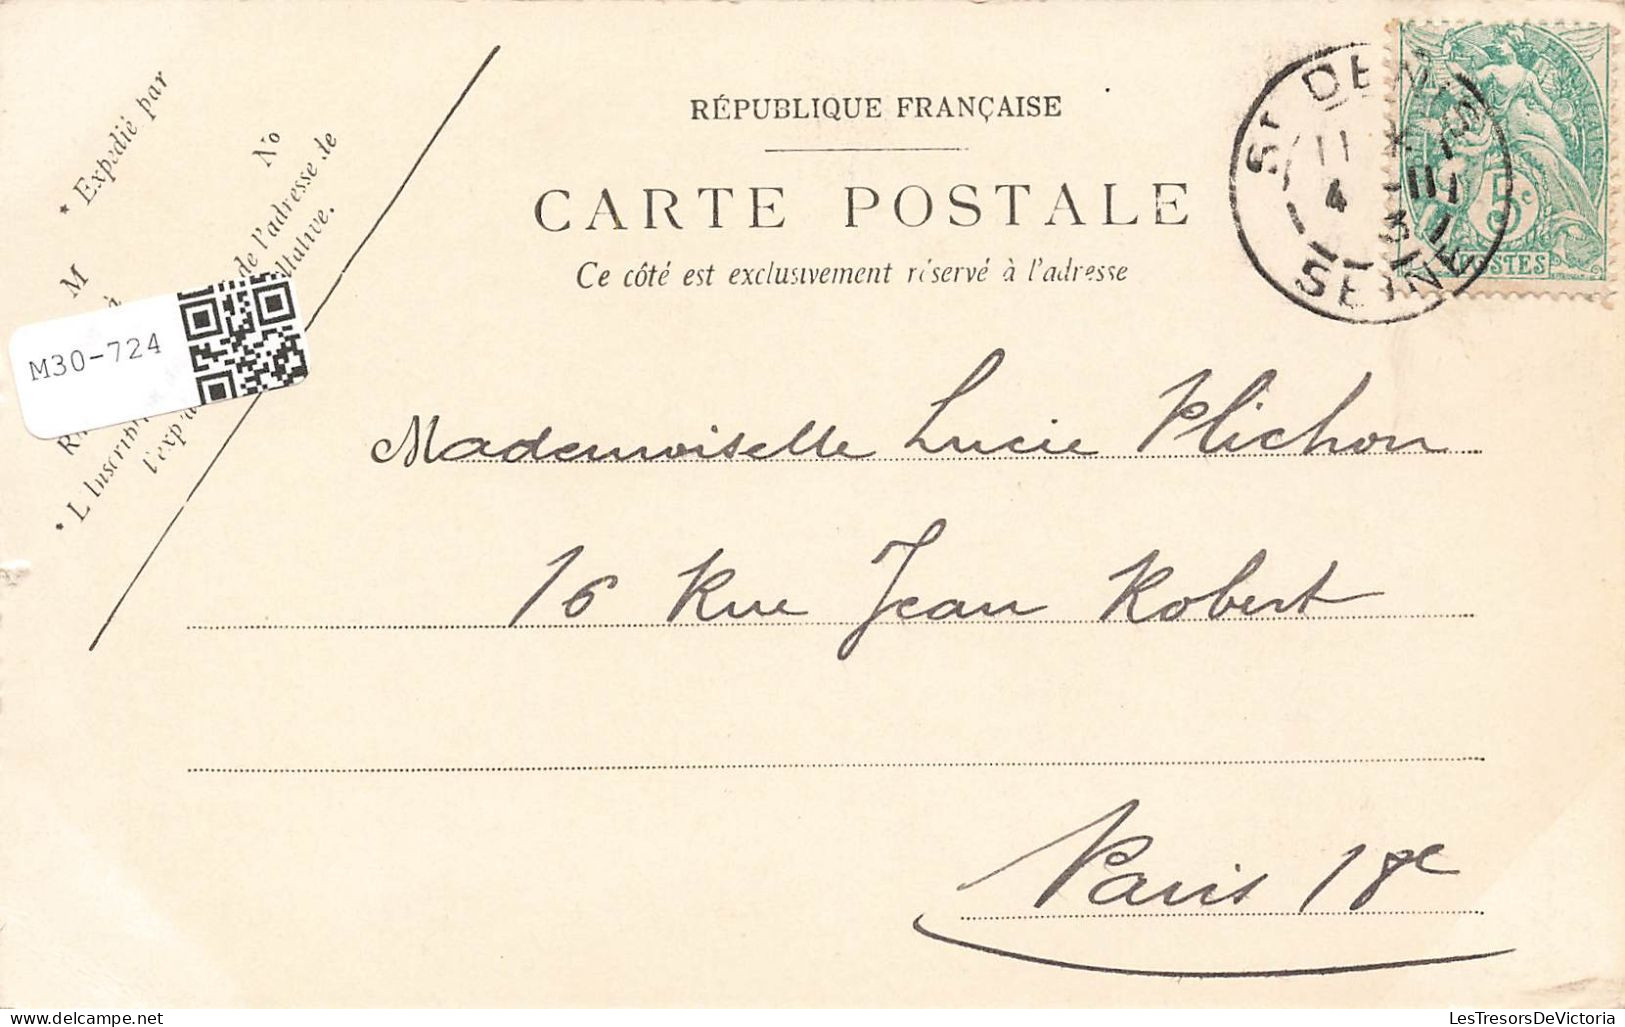 RÉPUBLIQUE FRANÇAISE
CARTE POSTALE
Ce côté est exclusivement réservé à l'adresse
* Expédié par
M
No
* L'Inscription de l'adresse de
l'exp
facultative.
M30-724
ST DENIS
11
4
SEINE
5c
POSTES
Mademoiselle Lucie Plichon
16 Rue Jean Robert
Paris 18e
LesTresorsDeVictoria
www.delcampe.net